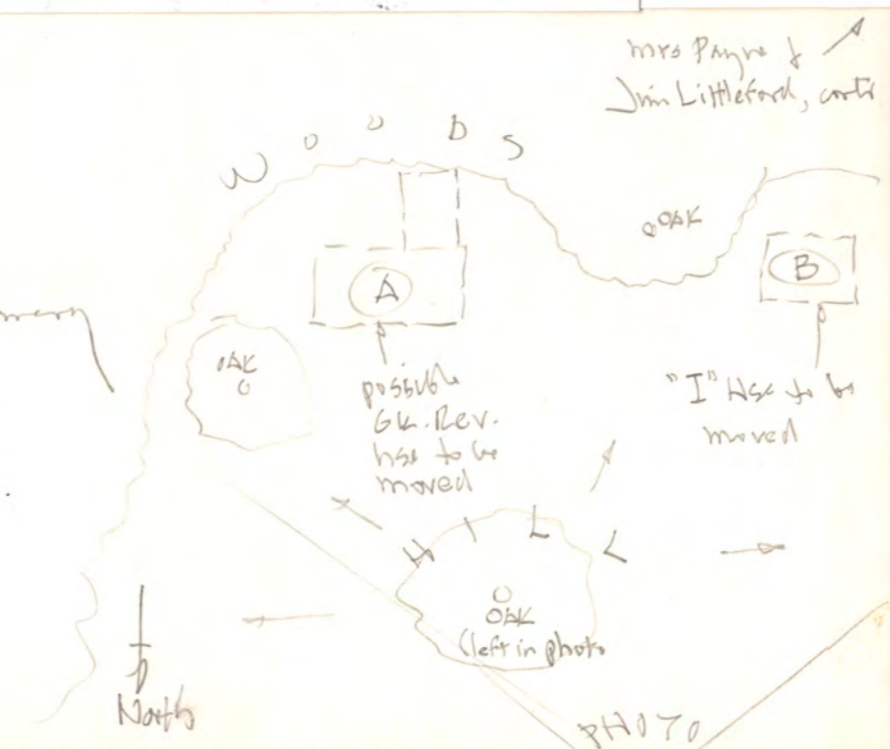 Mrs Payne &
Jim Littleford,
WOODS
OAK
A
B
OAK
possible
Gk. Rev.
hse to be
moved
"I" Hse to be
moved
HILL
OAK
(left in photo
North
PHOTO